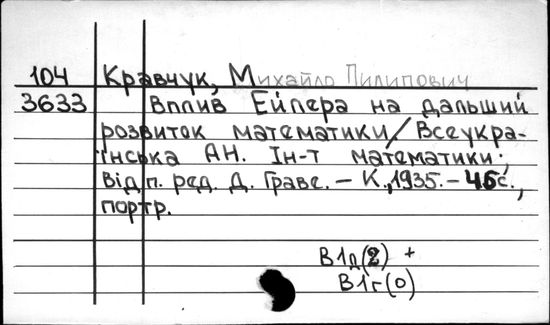 104 Кравчук, Михайло Пилипович
3633 Вплив Ейлера на дальший
розвиток математики/Всеукра-
їнська АН. Ін-т математики;
Відп. ред. Д. Граве. – К.,1935.–46с.,
портр.
В1д(2) +
В1г(0)